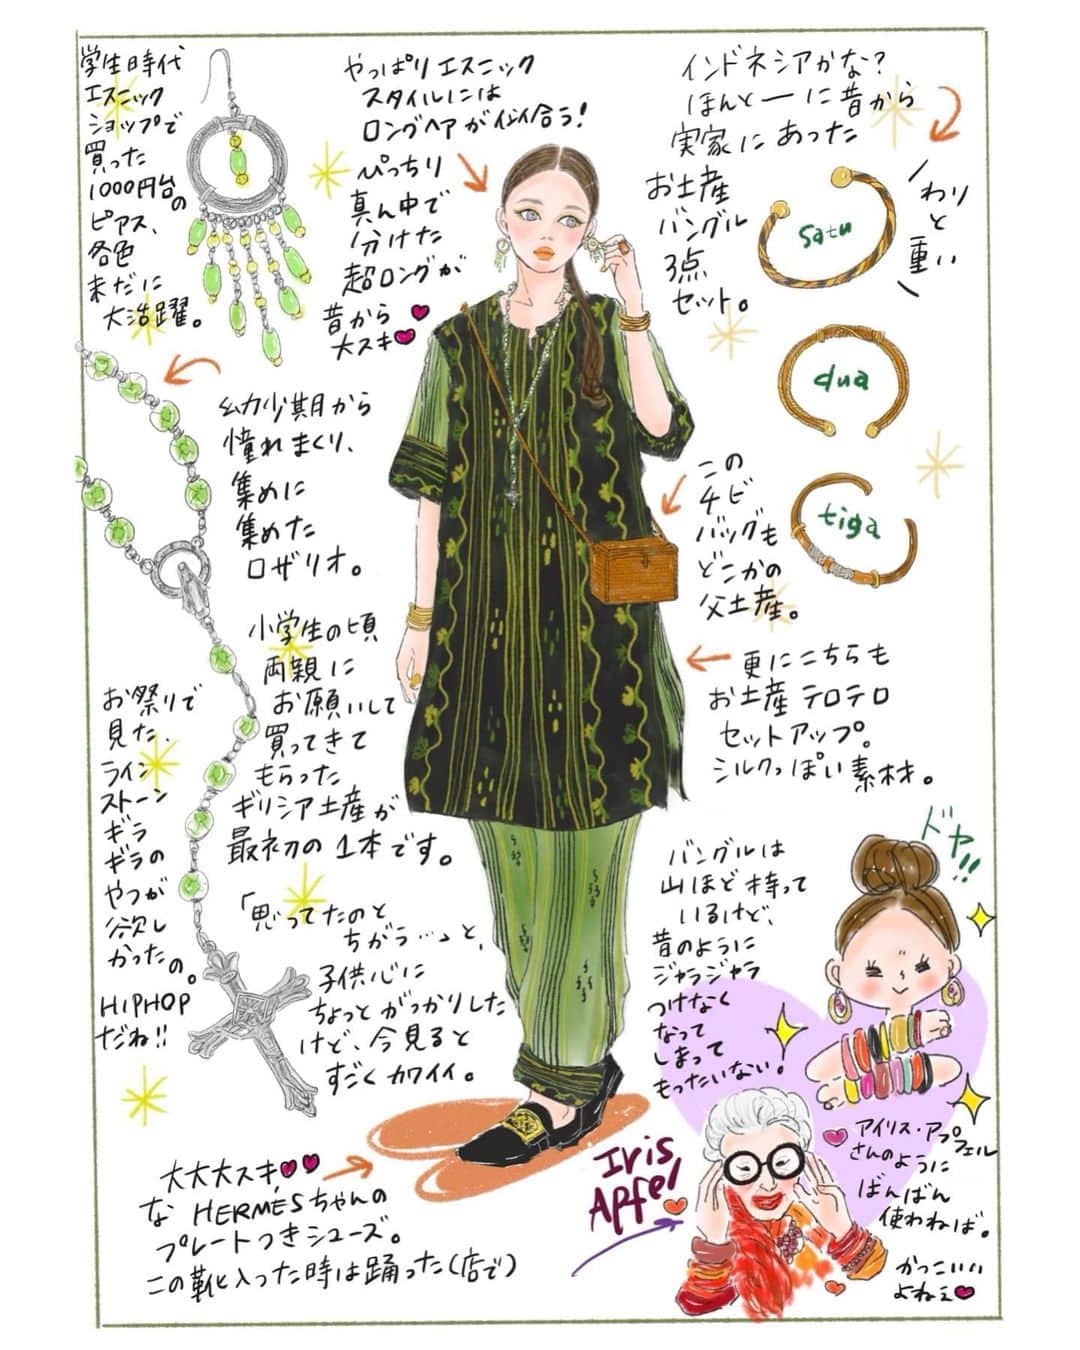 学生時代
エスニック
ショップで
買った
1000円台の
ピアス、
各色
未だに
大活躍。
やっぱりエスニック
スタイルには
ロングヘアが似合う！
ぴっちり
真ん中で
分けた
超ロングが
昔から
大スキ
インドネシアかな？
ほんとーに昔から
実家にあった
お土産
バングル
3点
セット。
わり
と
重い
satu
dua
tiga
幼少期から
憧れまくり、
集めに
集めた
ロザリオ。
この
チビ
バッグも
どこかの
父土産。
小学生の頃
両親に
お願いして
買ってきて
もらった
ギリシア土産が
最初の1本です。
更にこちらも
お土産テロテロ
セットアップ。
シルクっぽい素材。
お祭りで
見た、
ライン
ストーン
ギラ
ギラの
やつが
欲し
かったの。
HIPHOP
だね!!
「思ってたのと
ちがう…」と、
子供心に
ちょっとがっかりした
けど、今見ると
すごくカワイイ。
バングルは
山ほど持って
いるけど、
昔のように
ジャラジャラ
つけなく
なって
しまって
もったいない！
ドヤ!!
アイリス・アプフェル
さんのように
ばんばん
使わねば。
かっこいい
よねぇ
Iris
Apfel
大大大スキ
な HERMÈSちゃんの
プレートつきシューズ。
この靴と入った時は踊った(店で)